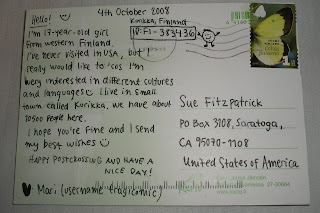 Hello!
4th October 2008
Kurikka, Finland
ID: FI-383436
I'm 17-year-old girl
from western Finland.
I've never visited in USA, but I
really would like to 'cos I'm
very interested in different cultures
and languages I live in small
town called Kurikka. We have about
10500 people here.
I hope you're fine and I send
my best wishes
HAPPY POSTCROSSING AND HAVE A
NICE DAY!
Mari (username tragicomic)
Sue Fitzpatrick
PO Box 3108, Saratoga,
CA 95070-1108
United States of America